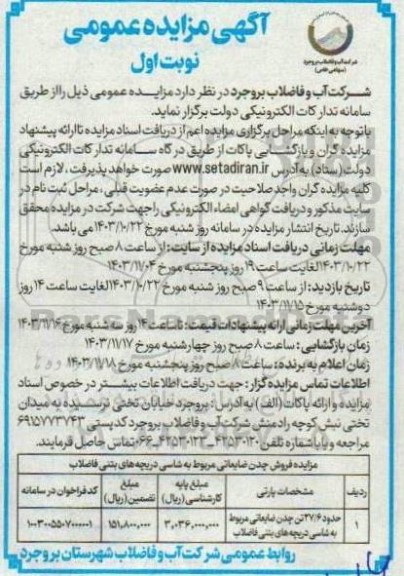 آگهی مزایده عمومی
نوبت اول
شرکت آب و فاضلاب بروجرد
(سهامی خاص)
شرکت آب و فاضلاب بروجرد در نظر دارد مزایده عمومی ذیل را از طریق
سامانه تدارکات الکترونیکی دولت برگزار نماید.
با توجه به اینکه مراحل برگزاری مزایده اعم از دریافت اسناد مزایده تا ارائه پیشنهاد
مزایده گران و بازگشایی پاکات از طریق درگاه سامانه تدارکات الکترونیکی
دولت (ستاد) به آدرس www.setadiran.ir صورت خواهد پذیرفت، لازم است
کلیه مزایده گران واجد صلاحیت در صورت عدم عضویت قبلی، مراحل ثبت نام در
سایت مذکور و دریافت گواهی امضاء الکترونیکی را جهت شرکت در مزایده محقق
سازند. تاریخ انتشار مزایده در سامانه روز شنبه مورخ ۱۴۰۳/۱۰/۲۲ می باشد.
مهلت زمانی دریافت اسناد مزایده از سایت: از ساعت ۸ صبح روز شنبه مورخ
۱۴۰۳/۱۰/۲۲ لغایت ساعت ۱۹ روز پنجشنبه مورخ ۱۴۰۳/۱۱/۰۴
تاریخ بازدید: از ساعت ۹ صبح روز شنبه مورخ ۱۴۰۳/۱۰/۲۲ لغایت ساعت ۱۴ روز
دوشنبه مورخ ۱۴۰۳/۱۱/۱۵
آخرین مهلت زمانی ارائه پیشنهادات قیمت: تا ساعت ۱۴ روز سه شنبه مورخ ۱۴۰۳/۱۱/۱۶
زمان بازگشایی: ساعت ۸ صبح روز چهارشنبه مورخ ۱۴۰۳/۱۱/۱۷
زمان اعلام به برنده: ساعت ۸ صبح روز پنجشنبه مورخ ۱۴۰۳/۱۱/۱۸
اطلاعات تماس مزایده گزار: جهت دریافت اطلاعات بیشتر در خصوص اسناد
مزایده و ارائه پاکات (الف) به آدرس: بروجرد خیابان تختی نرسیده به میدان
تختی نبش کوچه رادمنش شرکت آب و فاضلاب بروجرد کد پستی ۶۹۱۵۷۷۳۷۴۳
مراجعه و یا با شماره تلفن ۴۲۵۳۰۱۲۰_۴۲۵۳۰۱۲۳_۰۶۶ تماس حاصل فرمایند.
مزایده فروش چدن ضایعاتی مربوط به شاسی دریچه های بتنی فاضلاب
ردیف مشخصات پارتی مبلغ پایه کارشناسی (ریال) مبلغ تضمین (ریال) کد فراخوان در سامانه
۱ حدود ۳۷/۶ تن چدن ضایعاتی مربوط به شاسی دریچه های بتنی فاضلاب ۳,۰۳۶,۰۰۰,۰۰۰ ۱۵۱,۸۰۰,۰۰۰ ۱۰۰۳۰۰۵۵۰۷۰۰۰۰۰۱
روابط عمومی شرکت آب و فاضلاب شهرستان بروجرد